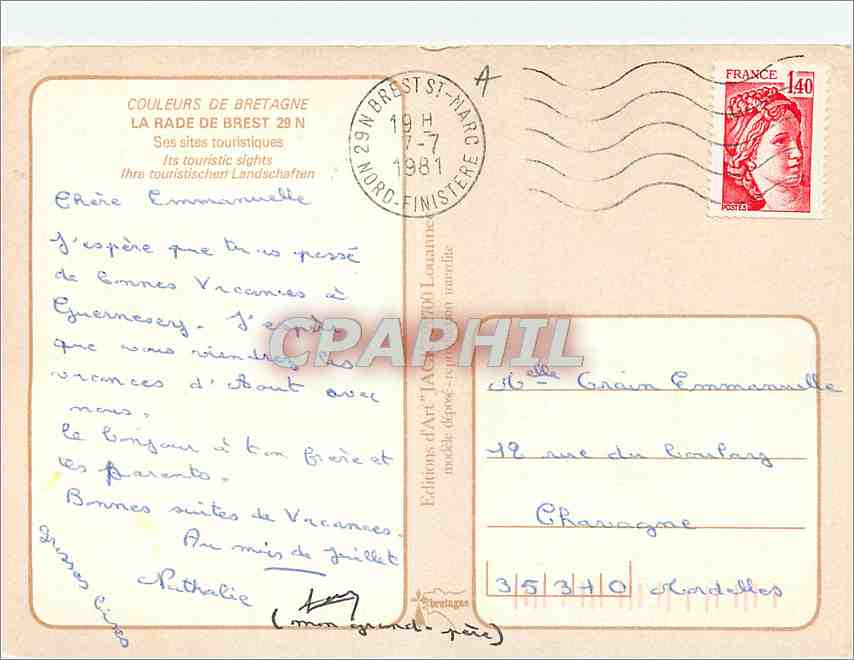 COULEURS DE BRETAGNE
LA RADE DE BREST 29 N
Ses sites touristiques
Its touristic sights
Ihre touristischen Landschaften
Chère Emmanuelle
J'espère que tu as passé
de Bonnes Vacances à
Guernesey. J'espère
que vous viendrez les
vacances d'Aout avec
nous.
le bonjour à ton frère et
tes parents.
Bonnes suites de Vacances.
Au mois de Juillet
Nathalie
grosses bises
(mon grand-père)
29 N BREST ST-MARC
19 H
7-7
1981
NORD-FINISTERE
A
FRANCE
1,40
POSTES
CPAPHIL
Editions d'Art "JACK" 700 Louannec
modèle déposé - reproduction interdite
bretagne
Melle Grain Emmanuelle
12 rue du
Chavagne
35310 Mordelles